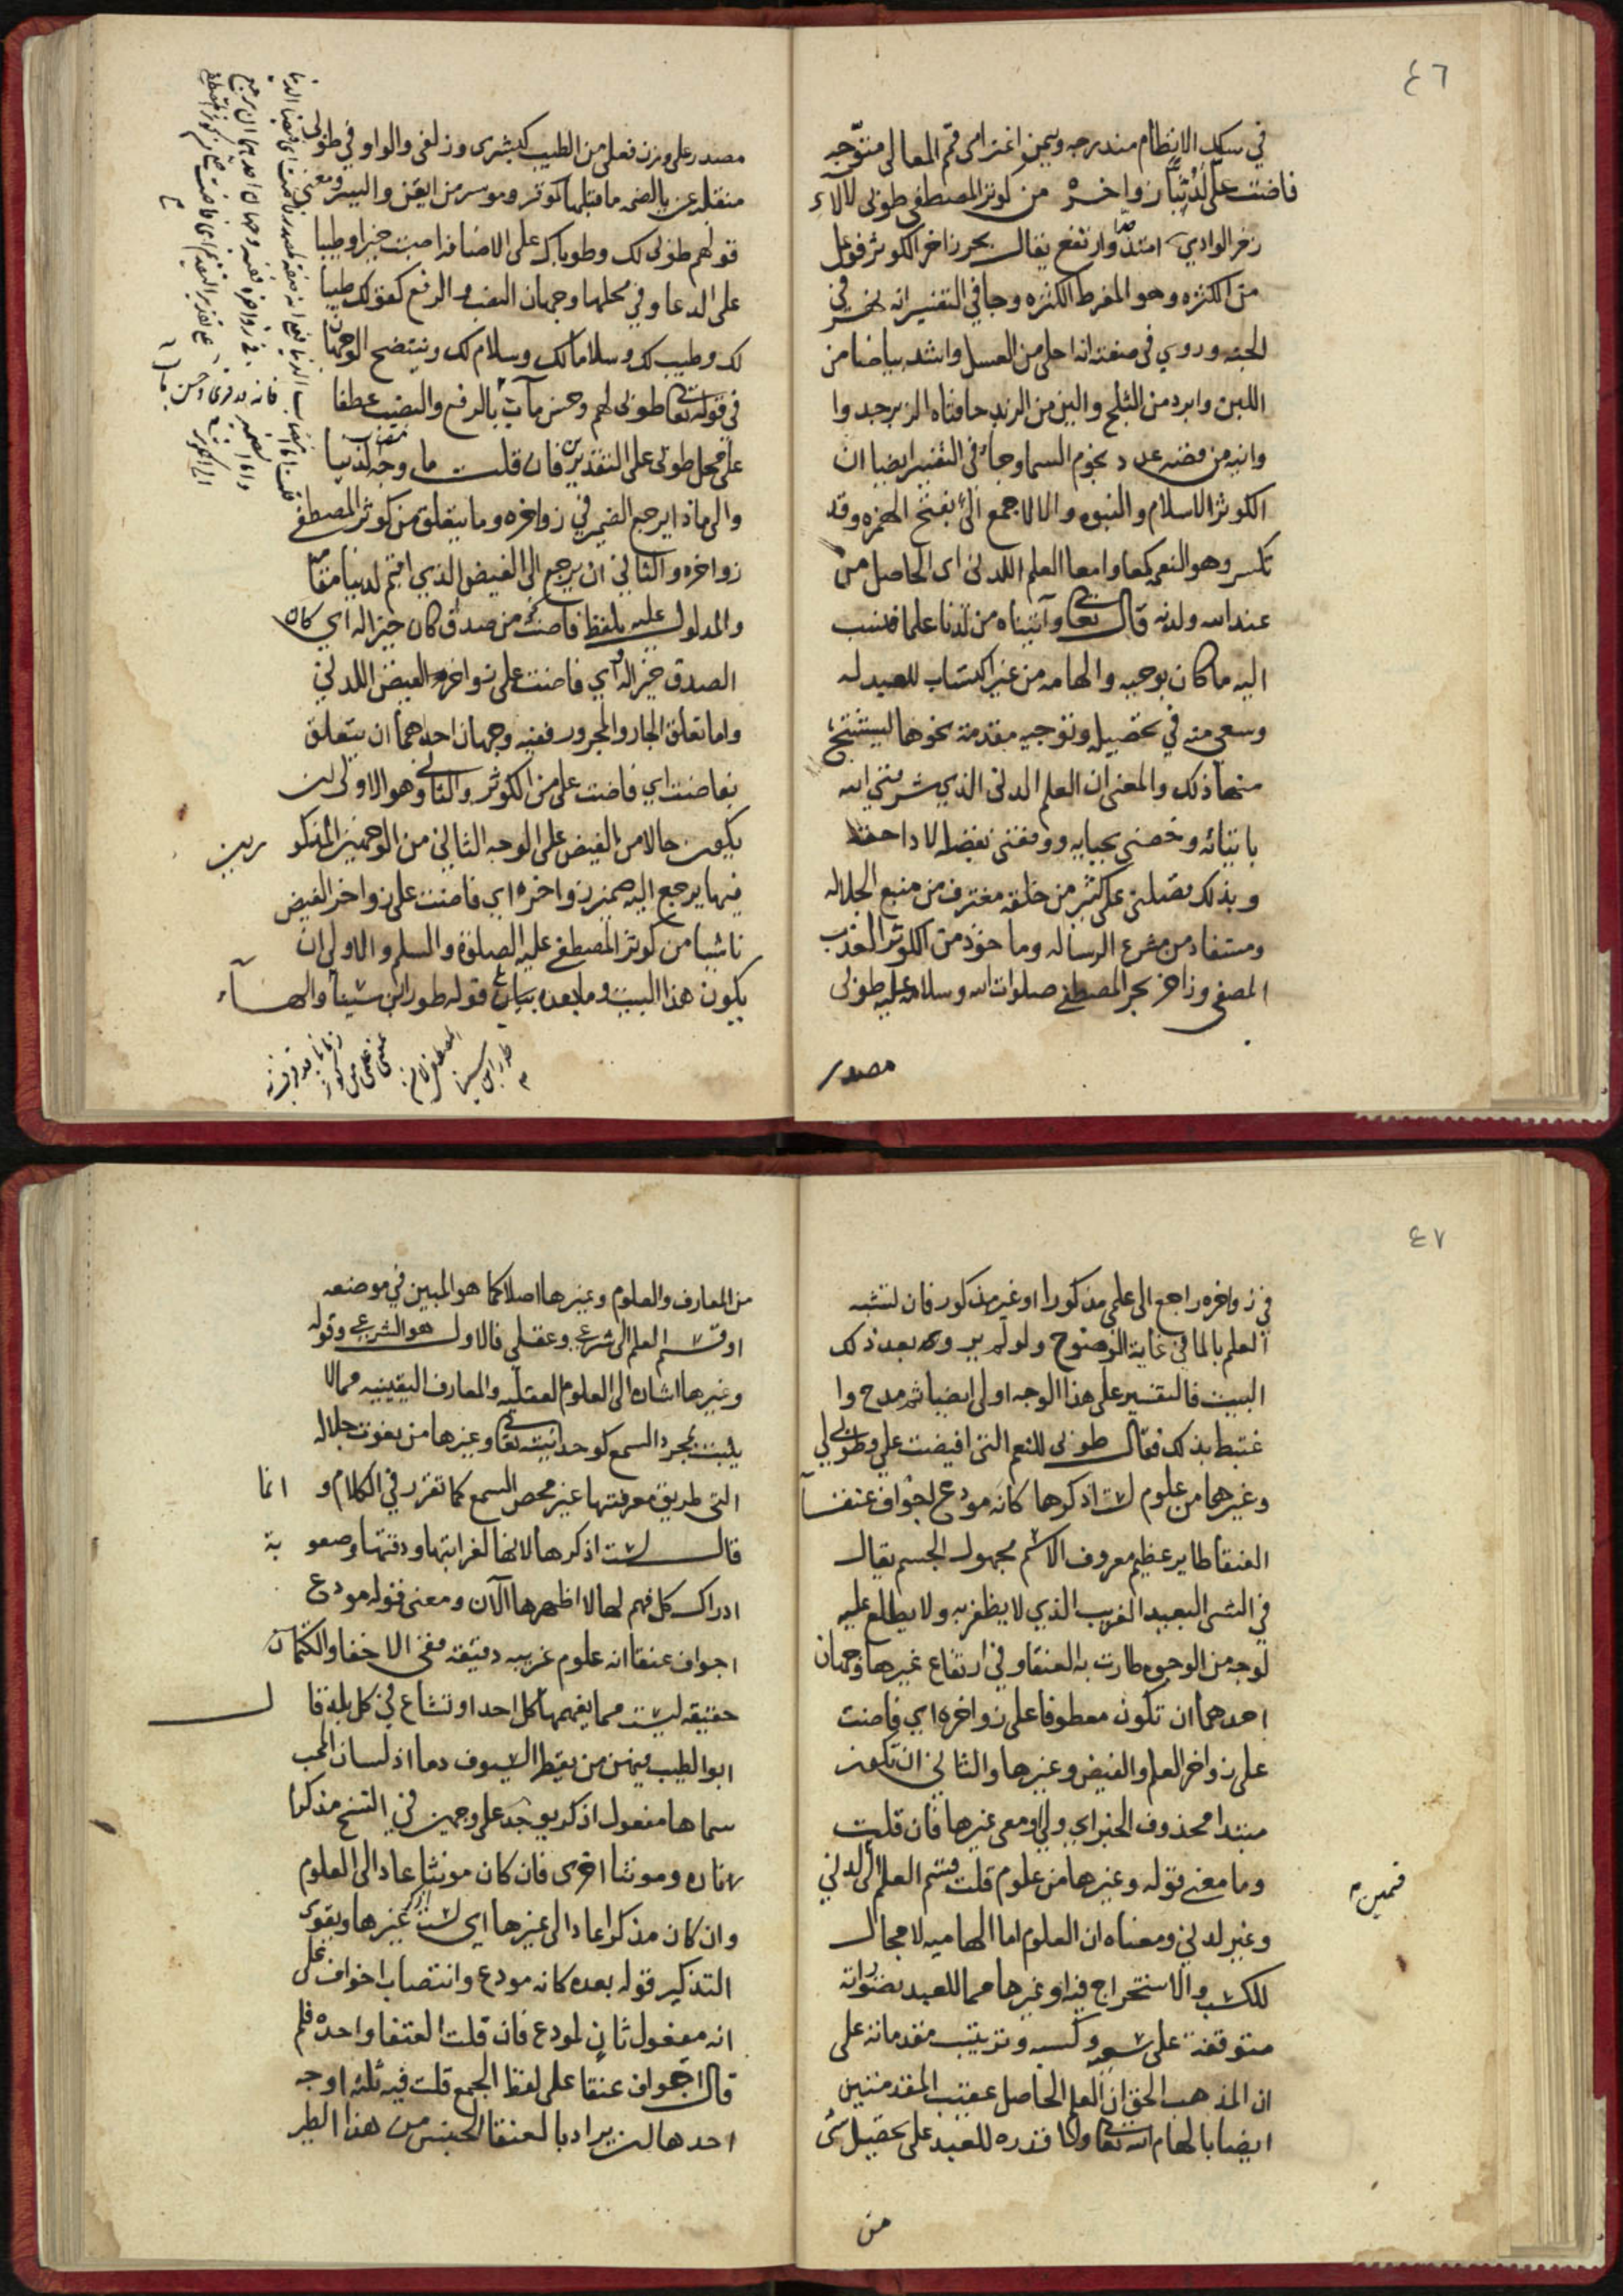 ٤٦
في سلك الانتظام مندرجه ويمين اغترامى قمم المعالى متوجه
فاضت علي لدنيا زواخره من كوثر المصطفى طوبى لالاء
زخر الوادي امتدّ وارتفع يقال بحر زاخر الكوثر فوعل
من الكثره وهو المفرط الكثره وجا في التفسير انه نهر في
الجنه وروي في صفته انه احلى من العسل واشد بياضا من
اللبن وابرد من الثلج والين من الزبد حافتاه الزبرجد وا
وانيه من فضه عدد نجوم السما وجاء في التفسير ايضا ان
الكوثر الاسلام والنبوه والالا جمع الىً بفتح الهمزه وقد
تكسر وهو النعم كمعا وامعا العلم اللدنى اى الحاصل من
عند الله ولدنه قال تعالى وآتيناه من لدنا علما فنسب
اليه ما كان بوحيه والهامه من غير اكتساب للعبد له
وسعى منه في تحصيله وتوجيه مقدمة نحوها ليستنتج
منها ذلك والمعنى ان العلم الدنى الذي شرفني الله
بايتائه وخصنى بحبايه ووفقنى بفضله لاداحقه
وبذلك فضلنى على كثير من خلقه مغترف من منبع الجلاله
ومستفاد من مشرع الرساله وماخوذ من الكوثر العذب
المصفى وزاخر بحر المصطفى صلوات الله وسلامه عليه طوبى
مصدر
مصدر على وزن فعلى من الطيب كبشرى وزلفى والواو في طوبى
منقلبه عن يا لضمه ما قبلها كموثر وموسر من ايقن واليسر ومعنى
قولهم طوبى لك وطوباك على الاضافه اصبت خيرا وطيبا
على الدعا وفي محلها وجهان النصب والرفع كقولك طيبا
لك وطيب لك وسلاما لك وسلام لك ويتضح الوجهان
في قوله تعالى طوبى لهم وحسن مآب بالرفع والنصب عطفا
على محل طوبى على التقديرين فان قلت ما وجه نصب لدنيا
والى ماذا يرجع الضمير في زواخره وما يتعلق من كوثر المصطفى
زواخره والثاني ان يرجع الى الفيض الذي اقيم لدنيا مقامه
والمدلول عليه بلفظ فاضت كقولك من صدق كان خيرا له اي كان
الصدق خيرا له اي فاضت على زواخره الفيض اللدني
واما تعلق الجار والمجرور ففيه وجهان احدهما ان يتعلق
بفاضت اي فاضت على من الكوثر والثاني وهو الاولى ان
يكون حالا من الفيض على الوجه الثاني من الوجهين المذكو رين
فيها يرجع اليه ضمير زواخره اي فاضت على زواخر الفيض
ناشيا من كوثر المصطفى عليه الصلوة والسلم والاولى ان
يكون هذا البيت وما بعده بيان قوله طور ابن سينا والهاء
٤٧
في زواخره راجع الى علمى مذكورا او غير مذكور فان تشبه
العلم بالما في غاية الوضوح ولو لم يرو به بعد ذلك
البيت فالتفسير على هذا الوجه اولى ايضا ثم مدح وا
غتبط بذلك فقال طوبى للنعم التى افيضت على وطوبى لي
وغيرهما من علوم لست اذكرها كانه مودع اجواف عنقآ
العنقا طاير عظيم معروف الاسم مجهول الجسم يقال
في الشى البعيد الغريب الذي لا يظفر به ولا يطلع عليه
لوجه من الوجوه طارت به العنقا وفي ارتفاع غيرها وجهان
احدهما ان تكون معطوفا على زواخره اي فاضت
على زواخر العلم والفيض وغيرها والثاني ان تكون
مبتدا محذوف الخبر اي ولي او معى غيرها فان قلت
وما معنى قوله وغيرها من علوم قلت قسم العلم الى لدني
قسمين
وغير لدني ومعناه ان العلوم اما الهاميه لا مجال
للكسب والاستخراج فيه او غيرها مما للعبد بضروراته
متوقفة على سعيه وكسبه وترتيب مقدماته على
ان المذهب الحق ان العلم الحاصل عقيب المقدمتين
ايضا بالهام الله تعالى ولا قدره للعبد على تحصيل شى
من
من المعارف والعلوم وغيرها اصلا كما هو المبين في موضعه
او قسم العلم الى شرعى وعقلي فالاول هو الشرعى وقوله
وغيرها اشاره الى العلوم العقليه والمعارف اليقينيه مما لا
يثبت بمجرد السمع كوحدانيته تعالى وغيرها من نعوت جلاله
التى طريق معرفتها غير محض السمع كما تقرر في الكلام و انما
قال لست اذكرها لانها لغرابتها ودقتها وصعو بة
ادراك كل فهم لها لا اظهرها الآن ومعنى قوله مودع
اجواف عنقا انه علوم غريبه دقيقه ففى الاخفا والكتمان
حقيقه ليست مما يفهمها كل احد او تشاع في كل بلد قا ل
ابو الطيب فيمن من يقطر السيوف دما اذ لسان المحب
سماها مفعول اذكر يوجد على وجهين في النسخ مذكرا
تاره ومونثا اخرى فان كان مونثا عاد الى العلوم
وان كان مذكرا عاد الى غيرها اي لست اذكر غيرها ويقوى
التذكير قوله بعده كانه مودع وانتصاب اجواف على
انه مفعول ثانٍ لمودع فان قلت العنقا واحده فلم
قال اجواف عنقا على لفظ الجمع قلت فيه ثلثه اوجه
احدها ان يراد بالعنقا الجنس من هذا الطير